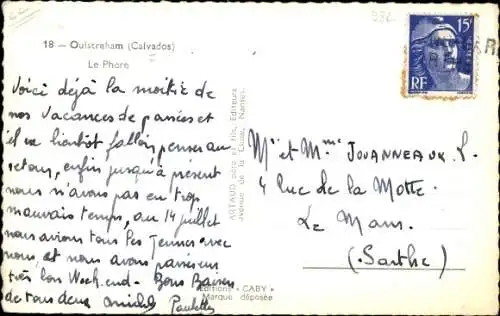 18 — Ouistreham (Calvados)
Le Phare
Voici déjà la moitié de
nos vacances de passées et
il va bientôt falloir penser au
retour, enfin jusqu'à présent
nous n'avons pas eu trop
mauvais temps, au 14 juillet
nous avions tous les jeunes avec
nous, et nous avons passé un
très bon Week-end. Bons Baisers
de tous deux Michel Paulette
ARTAUD père et fils, Editeurs
avenue de la Close, Nantes.
Editions "CABY"
Marque déposée
15F
RF
M. et Mme JOUANNEAUX L.
4 Rue de la Motte.
Le Mans.
(Sarthe)